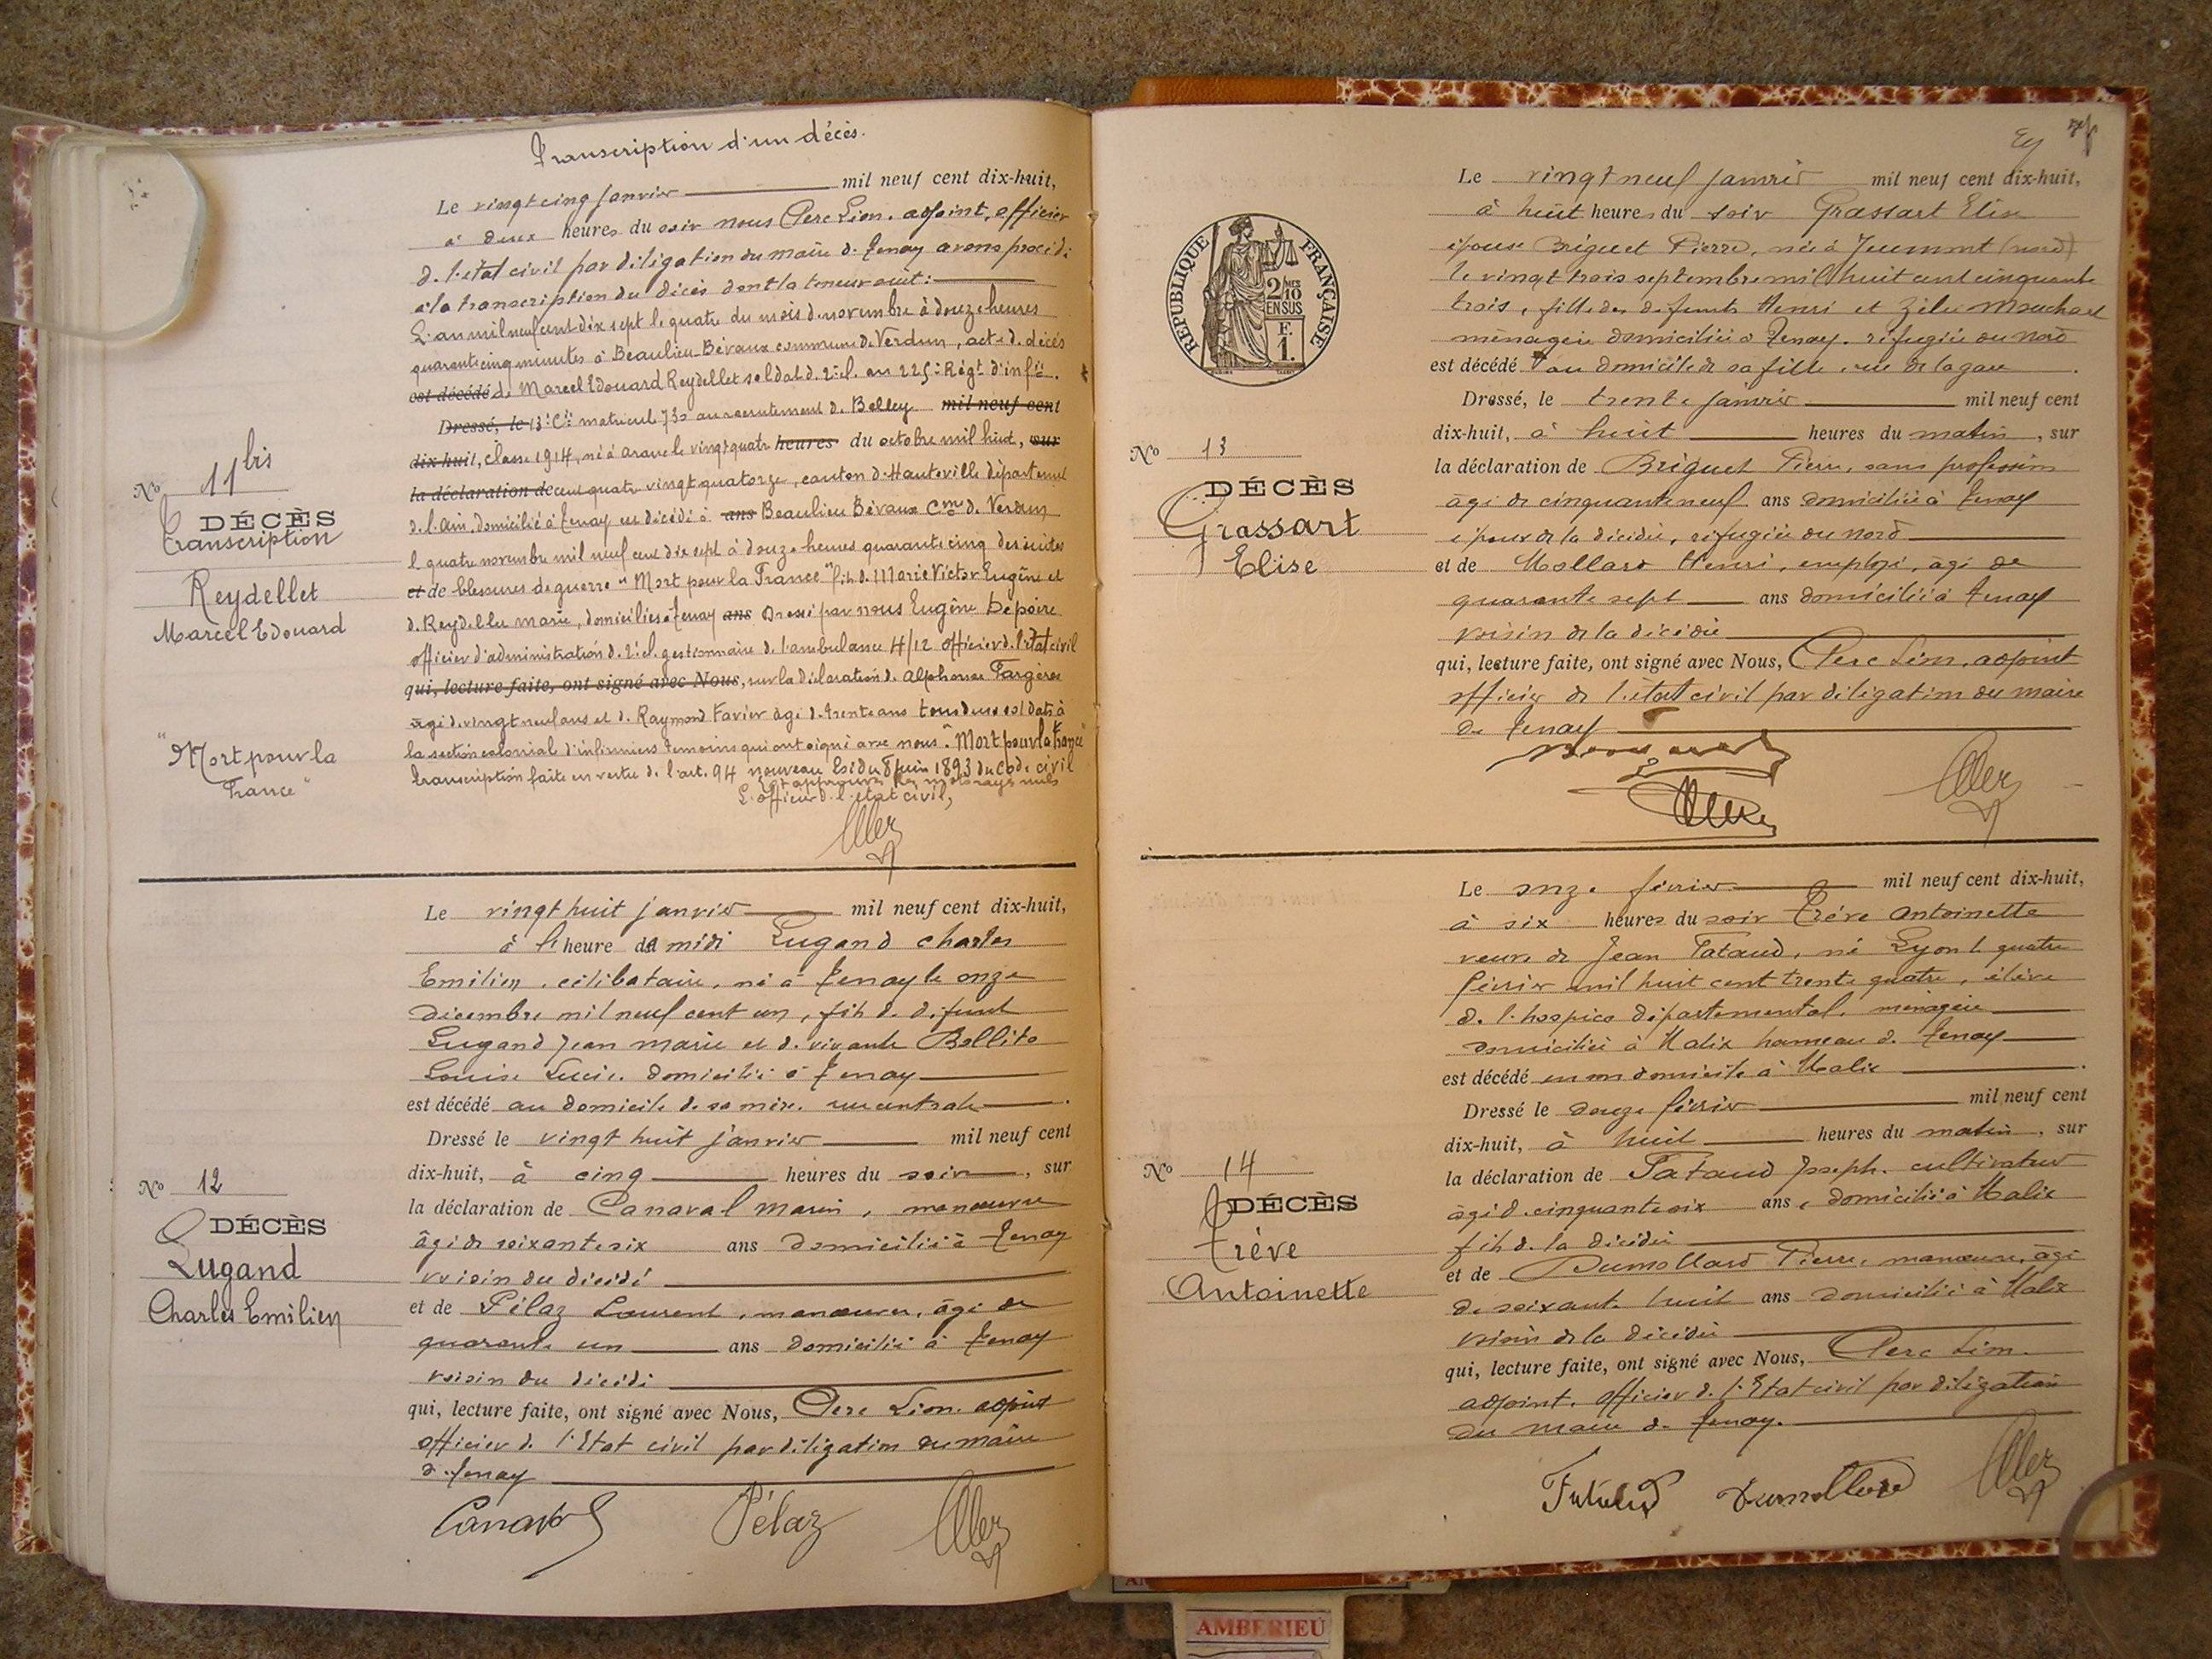 Transcription d'un décès.
Le vingt cinq janvier mil neuf cent dix-huit,
à deux heures du soir nous Clerc Léon, adjoint, officier
de l'état civil par délégation du maire de Tenay avons procédé
à la transcription du décès dont la teneur suit :
L'an mil neuf cent dix sept le quatre du mois de novembre à douze heures
quarante cinq minutes à Beaulieu-Bévaux commune de Verdun, acte de décès
est décédé de Marcel Edouard Reydellet soldat de 2e cl. au 225e Régt d'inftie.
Dressé, le 13e Cie matricule 730 au recrutement de Belley mil neuf cent
dix-huit, classe 1914, né à Aranc le vingt quatre heures du octobre mil huit, sur
la déclaration de cent quatre vingt quatorze, canton d'Hauteville département
de l'Ain, domicilié à Tenay est décédé à ans Beaulieu Bévaux Cne de Verdun
le quatre novembre mil neuf cent dix sept à douze heures quarante cinq des suites
et de blessures de guerre "Mort pour la France" fils de Marie Victor Eugène et
de Reydellet Marie, domiciliés à Tenay ans Dressé par nous Eugène Depoire
officier d'administration de 2e cl. gestionnaire de l'ambulance 4/12 officier de l'état civil
qui, lecture faite, ont signé avec Nous, sur la déclaration de Alphonse Fargères
âgé de vingt neuf ans et de Raymond Favier âgé de trente ans tous deux soldats à
la section colonial d'infirmiers témoins qui ont signé avec nous. "Mort pour la France"
transcription faite en vertu de l'art. 94 nouveau Loi du 8 juin 1893 du Code civil
approuvé mots rayés nuls
L'officier de l'état civil,
No 11bis
DÉCÈS
Transcription
Reydellet
Marcel Edouard
"Mort pour la
France"
Le vingt huit janvier mil neuf cent dix-huit,
à l'heure de midi Lugand Charles
Emilien, célibataire, né à Tenay le onze
décembre mil neuf cent un, fils de défunt
Lugand Jean Marie et de vivante Bellito
Louise Lucie. domicilié à Tenay
est décédé au domicile de sa mère, rue centrale.
Dressé le vingt huit janvier mil neuf cent
dix-huit, à cinq heures du soir, sur
la déclaration de Canaval Marin, manœuvre
âgé de soixante six ans domicilié à Tenay
voisin du décédé
et de Pélaz Laurent, manœuvre, âgé de
quarante un ans domicilié à Tenay
voisin du décédé
qui, lecture faite, ont signé avec Nous, Clerc Léon, adjoint
officier de l'Etat civil par délégation du maire
de Tenay
Canaval Pélaz Clerc
No 12
DÉCÈS
Lugand
Charles Emilien
Le vingt neuf janvier mil neuf cent dix-huit,
à huit heures du soir Grassart Elise
épouse Briguet Pierre, née à Jeumont (nord)
le vingt trois septembre mil huit cent cinquante
trois, fille des défunts Henri et Zélie Mouchart
ménagère domiciliée à Tenay. réfugiée du nord
est décédé au domicile de sa fille, rue de la gare.
Dressé, le trente janvier mil neuf cent
dix-huit, à huit heures du matin, sur
la déclaration de Briguet Pierre, sans profession
âgé de cinquante neuf ans domicilié à Tenay
époux de la décédée, réfugiée du nord
et de Mollard Henri, employé, âgé de
quarante sept ans domicilié à Tenay
voisin de la décédée
qui, lecture faite, ont signé avec Nous, Clerc Léon, adjoint
officier de l'état civil par délégation du maire
de Tenay
Clerc
REPUBLIQUE FRANÇAISE
2 MES
10
EN SUS
F.
1.
No 13
DÉCÈS
Grassart
Elise
Le onze février mil neuf cent dix-huit,
à six heures du soir Trêve Antoinette
veuve de Jean Tataud, né Lyon le quatre
février mil huit cent trente quatre, élève
de l'hospice départemental, ménagère
domiciliée à Malix hameau de Tenay
est décédé en son domicile à Malix.
Dressé le douze février mil neuf cent
dix-huit, à huit heures du matin, sur
la déclaration de Tataud Joseph. cultivateur
âgé de cinquante six ans, domicilié à Malix
fils de la décédée
et de Dumollard Pierre, manœuvre, âgé
de soixante huit ans domicilié à Malix
voisin de la décédée
qui, lecture faite, ont signé avec Nous, Clerc Léon
adjoint. officier de l'Etat civil par délégation
du maire de Tenay.
Dumollard Clerc
No 14
DÉCÈS
Trêve
Antoinette
AMBERIEU